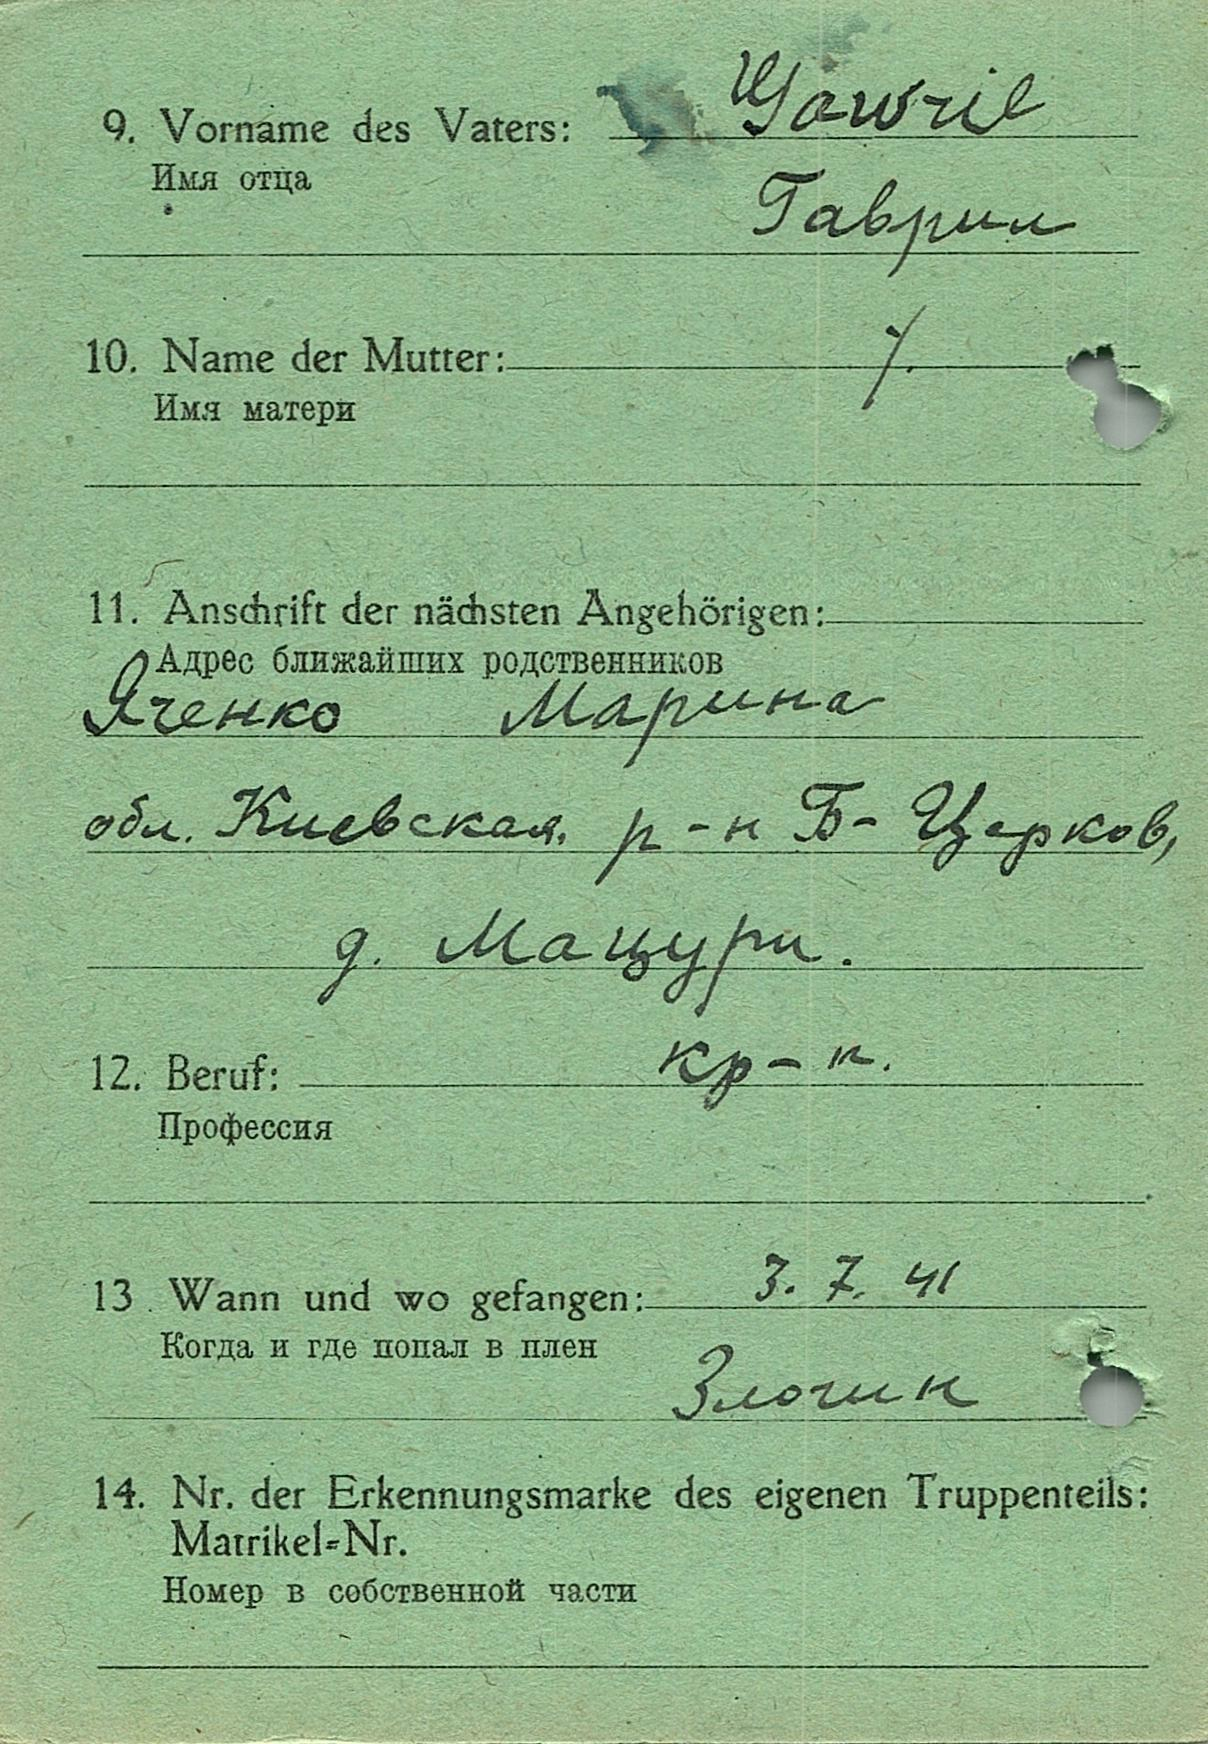 9. Vorname des Vaters: Gawril
Имя отца
Гаврил
10. Name der Mutter: /.
Имя матери
11. Anschrift der nächsten Angehörigen:
Адрес ближайших родственников
Яченко Марина
обл. Киевская, р-н Б-Церков,
д. Мацури.
12. Beruf: кр-н.
Профессия
13. Wann und wo gefangen: 3. 7. 41
Когда и где попал в плен
Злочин
14. Nr. der Erkennungsmarke des eigenen Truppenteils:
Matrikel-Nr.
Номер в собственной части